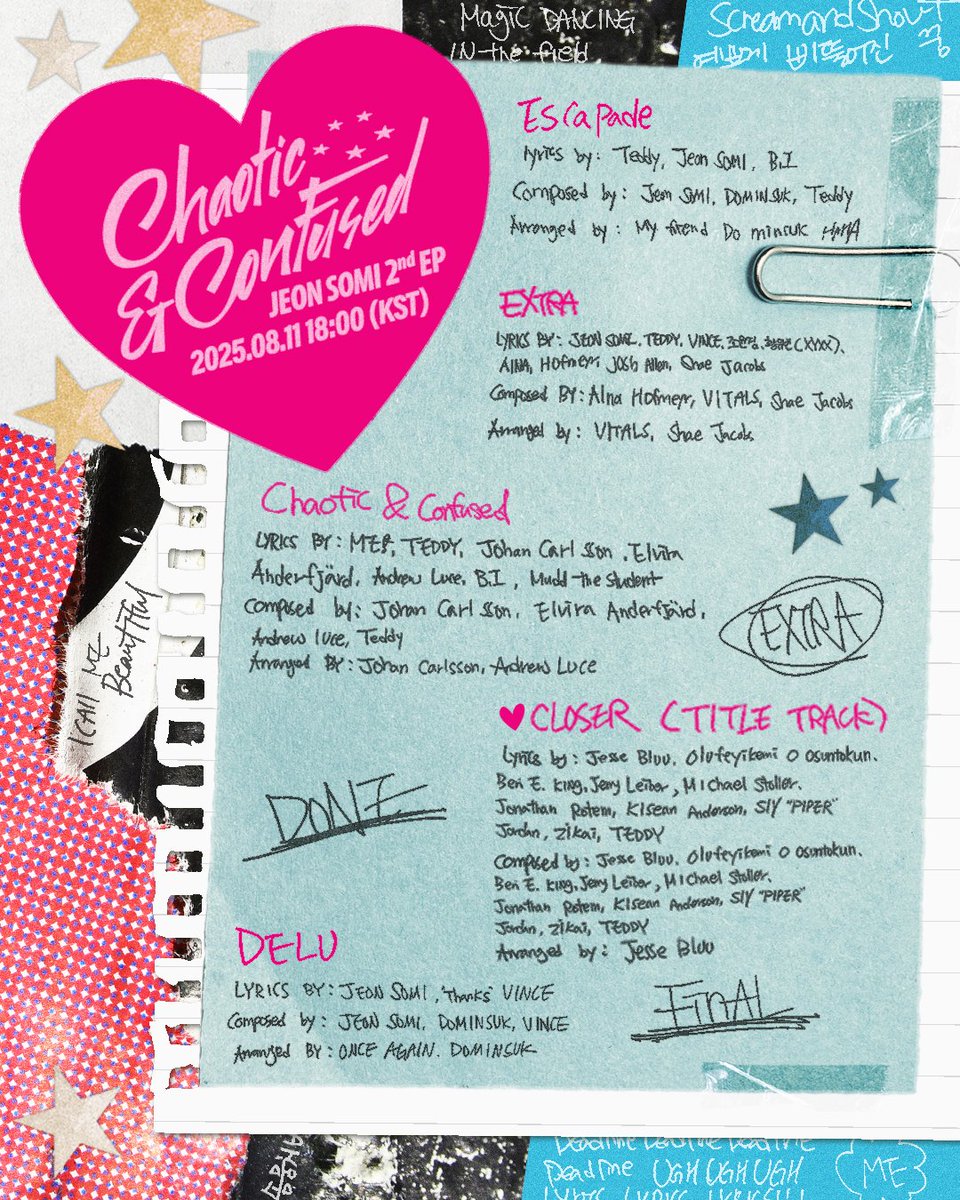 Magic DANCING
IN the field
Scream and Shout
Chaotic
& Confused
JEON SOMI 2nd EP
2025.08.11 18:00 (KST)
Escapade
lyrics by: Teddy, Jeon SOMI, B.I
Composed by: Jeon SOMI, DOMINSUK, Teddy
Arranged by: My friend Dominsuk HAHA
EXTRA
LYRICS BY: JEON SOMI, TEDDY, VINCE,
AINA, Hofmeyr, Josh Allen, Shae Jacobs
Composed BY: Aina Hofmeyr, VITALS, Shae Jacobs
Arranged by: VITALS, Shae Jacobs
Chaotic & Confused
LYRICS BY: TEDDY, Johan Carlsson, Elvira
Anderfjärd, Andrew Luce, B.I, Mudd the student
Composed by: Johan Carlsson, Elvira Anderfjärd,
Andrew luce, Teddy
Arranged BY: Johan Carlsson, Andrew Luce
EXTRA
I CAll ME
Beautiful
♥CLOSER (TITLE TRACK)
Lyrics by: Jesse Bluu, Olufeyikemi O Osuntokun.
Ben E. King, Jerry Leiber, Michael Stoller.
Jonathan Rotem, Kisean Anderson, SlY "PIPER"
Jordan, Zikai, TEDDY
Composed by: Jesse Bluu, Olufeyikemi O Osuntokun.
Ben E. King, Jerry Leiber, Michael Stoller.
Jonathan Rotem, Kisean Anderson, SlY "PIPER"
Jordan, Zikai, TEDDY
Arranged by: Jesse Bluu
DONE
DELU
LYRICS BY: JEON SOMI, "Thanks" VINCE
Composed by: JEON SOMI, DOMINSUK, VINCE
Arranged BY: ONCE AGAIN. DOMINSUK
FINAL
Deadme UGH UGH UGH
(ME)